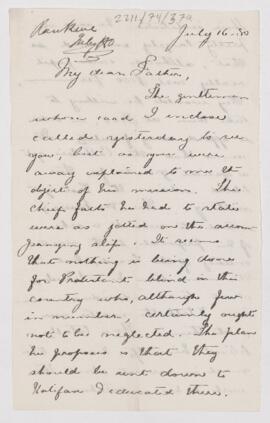 2211/74/37a
July 16. 80
My dear Father,
The gentleman
whose card I inclose
called yesterday to see
you, but as you were
away explained to me the
object of his mission. The
chief facts he had to state
were as jotted on the accom
panying slip. It seems
that nothing is being done
for Protestant blind in this
country who, although few
in number, certainly ought
not to be neglected. The plan
he proposes is that they
should be sent down to
Halifax & educated there.